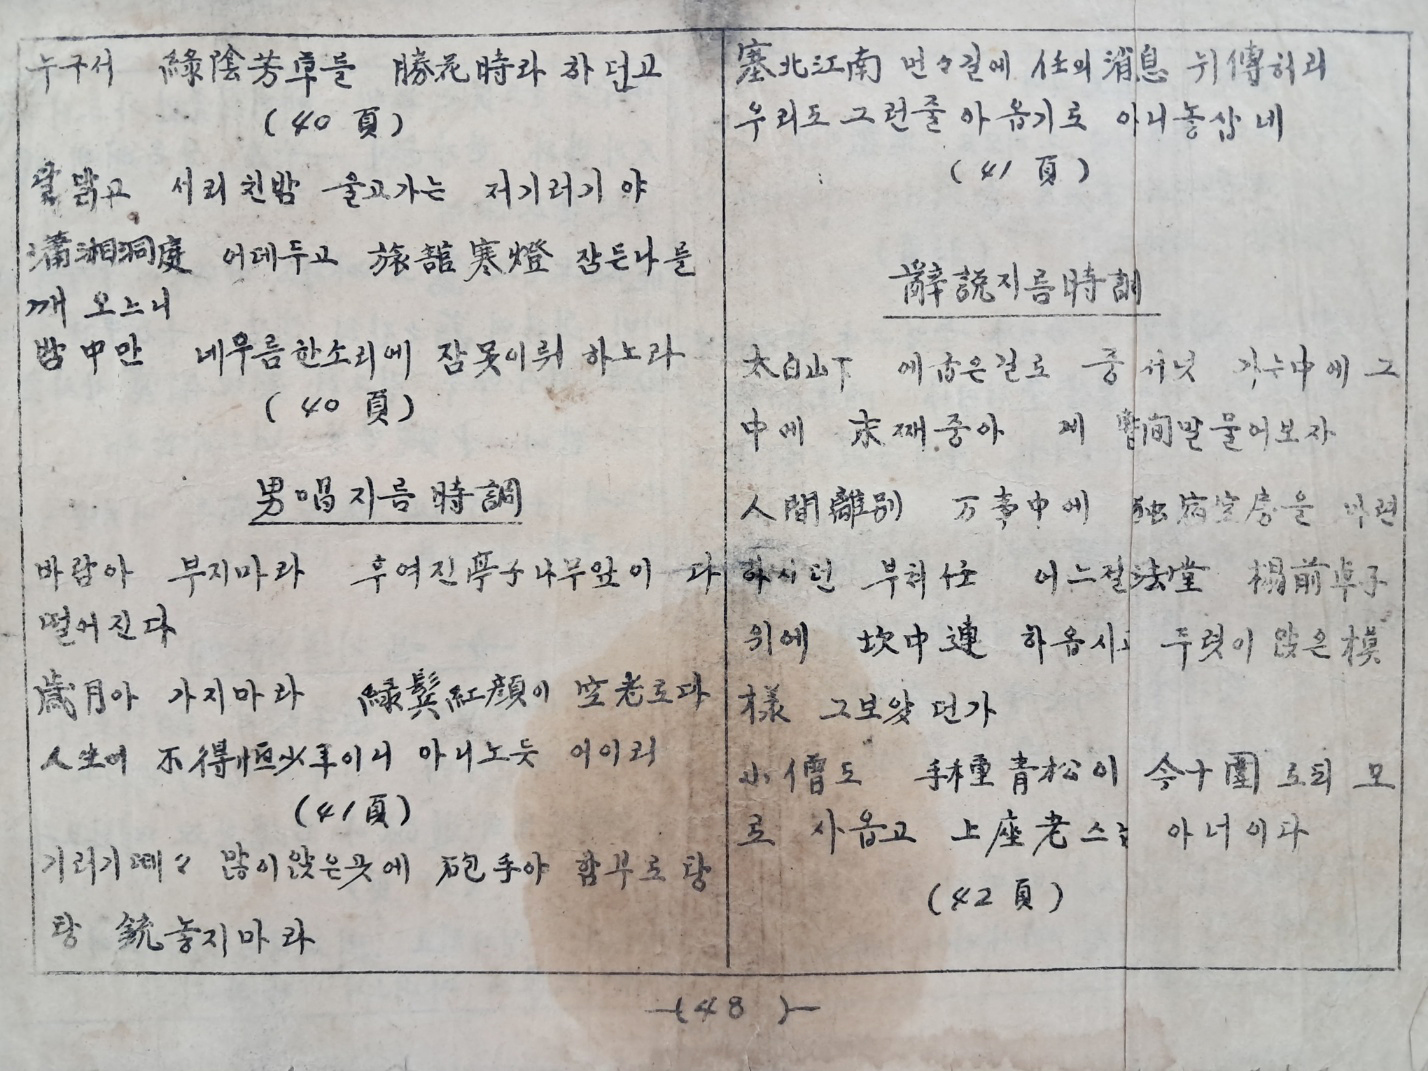 누구서 綠陰芳草를 勝花時라 하던고
(40 頁)
달밝고 서리친밤 울고가는 저기러기야
瀟湘洞庭 어데두고 旅舘寒燈 잠든나를
깨 오느니
밤中만 네우름한소리에 잠못이뤄 하노라
(40 頁)
男唱지름時調
바람아 부지마라 후여진亭子나무잎이 다
떨어진다
歲月아 가지마라 綠鬓紅顔이 空老로다
人生이 不得恒少年이니 아니노듯 어이리
(41頁)
기러기떼々 많이앉은곳에 砲手야 함부로탕
탕 銃놓지마라
塞北江南 먼々길에 任의消息 뉘傳하리
우리도그런줄아옵기로 아니놓삽네
(41 頁)
辭說지름時調
太白山下 에굽은길로 중서넛 가는中에 그
中에 末째중아 게 暫間말물어보자
人間離別 万事中에 独宿空房을 마련
하시던 부처任 어느절法堂 榻前卓子
위에 坎中連 하옵시고 두렷이 앉은模
樣 그보았던가
小僧도 手種靑松이 今十圍로되 모
로 사옵고 上座老스는 아너이다
(42 頁)
-(48)-